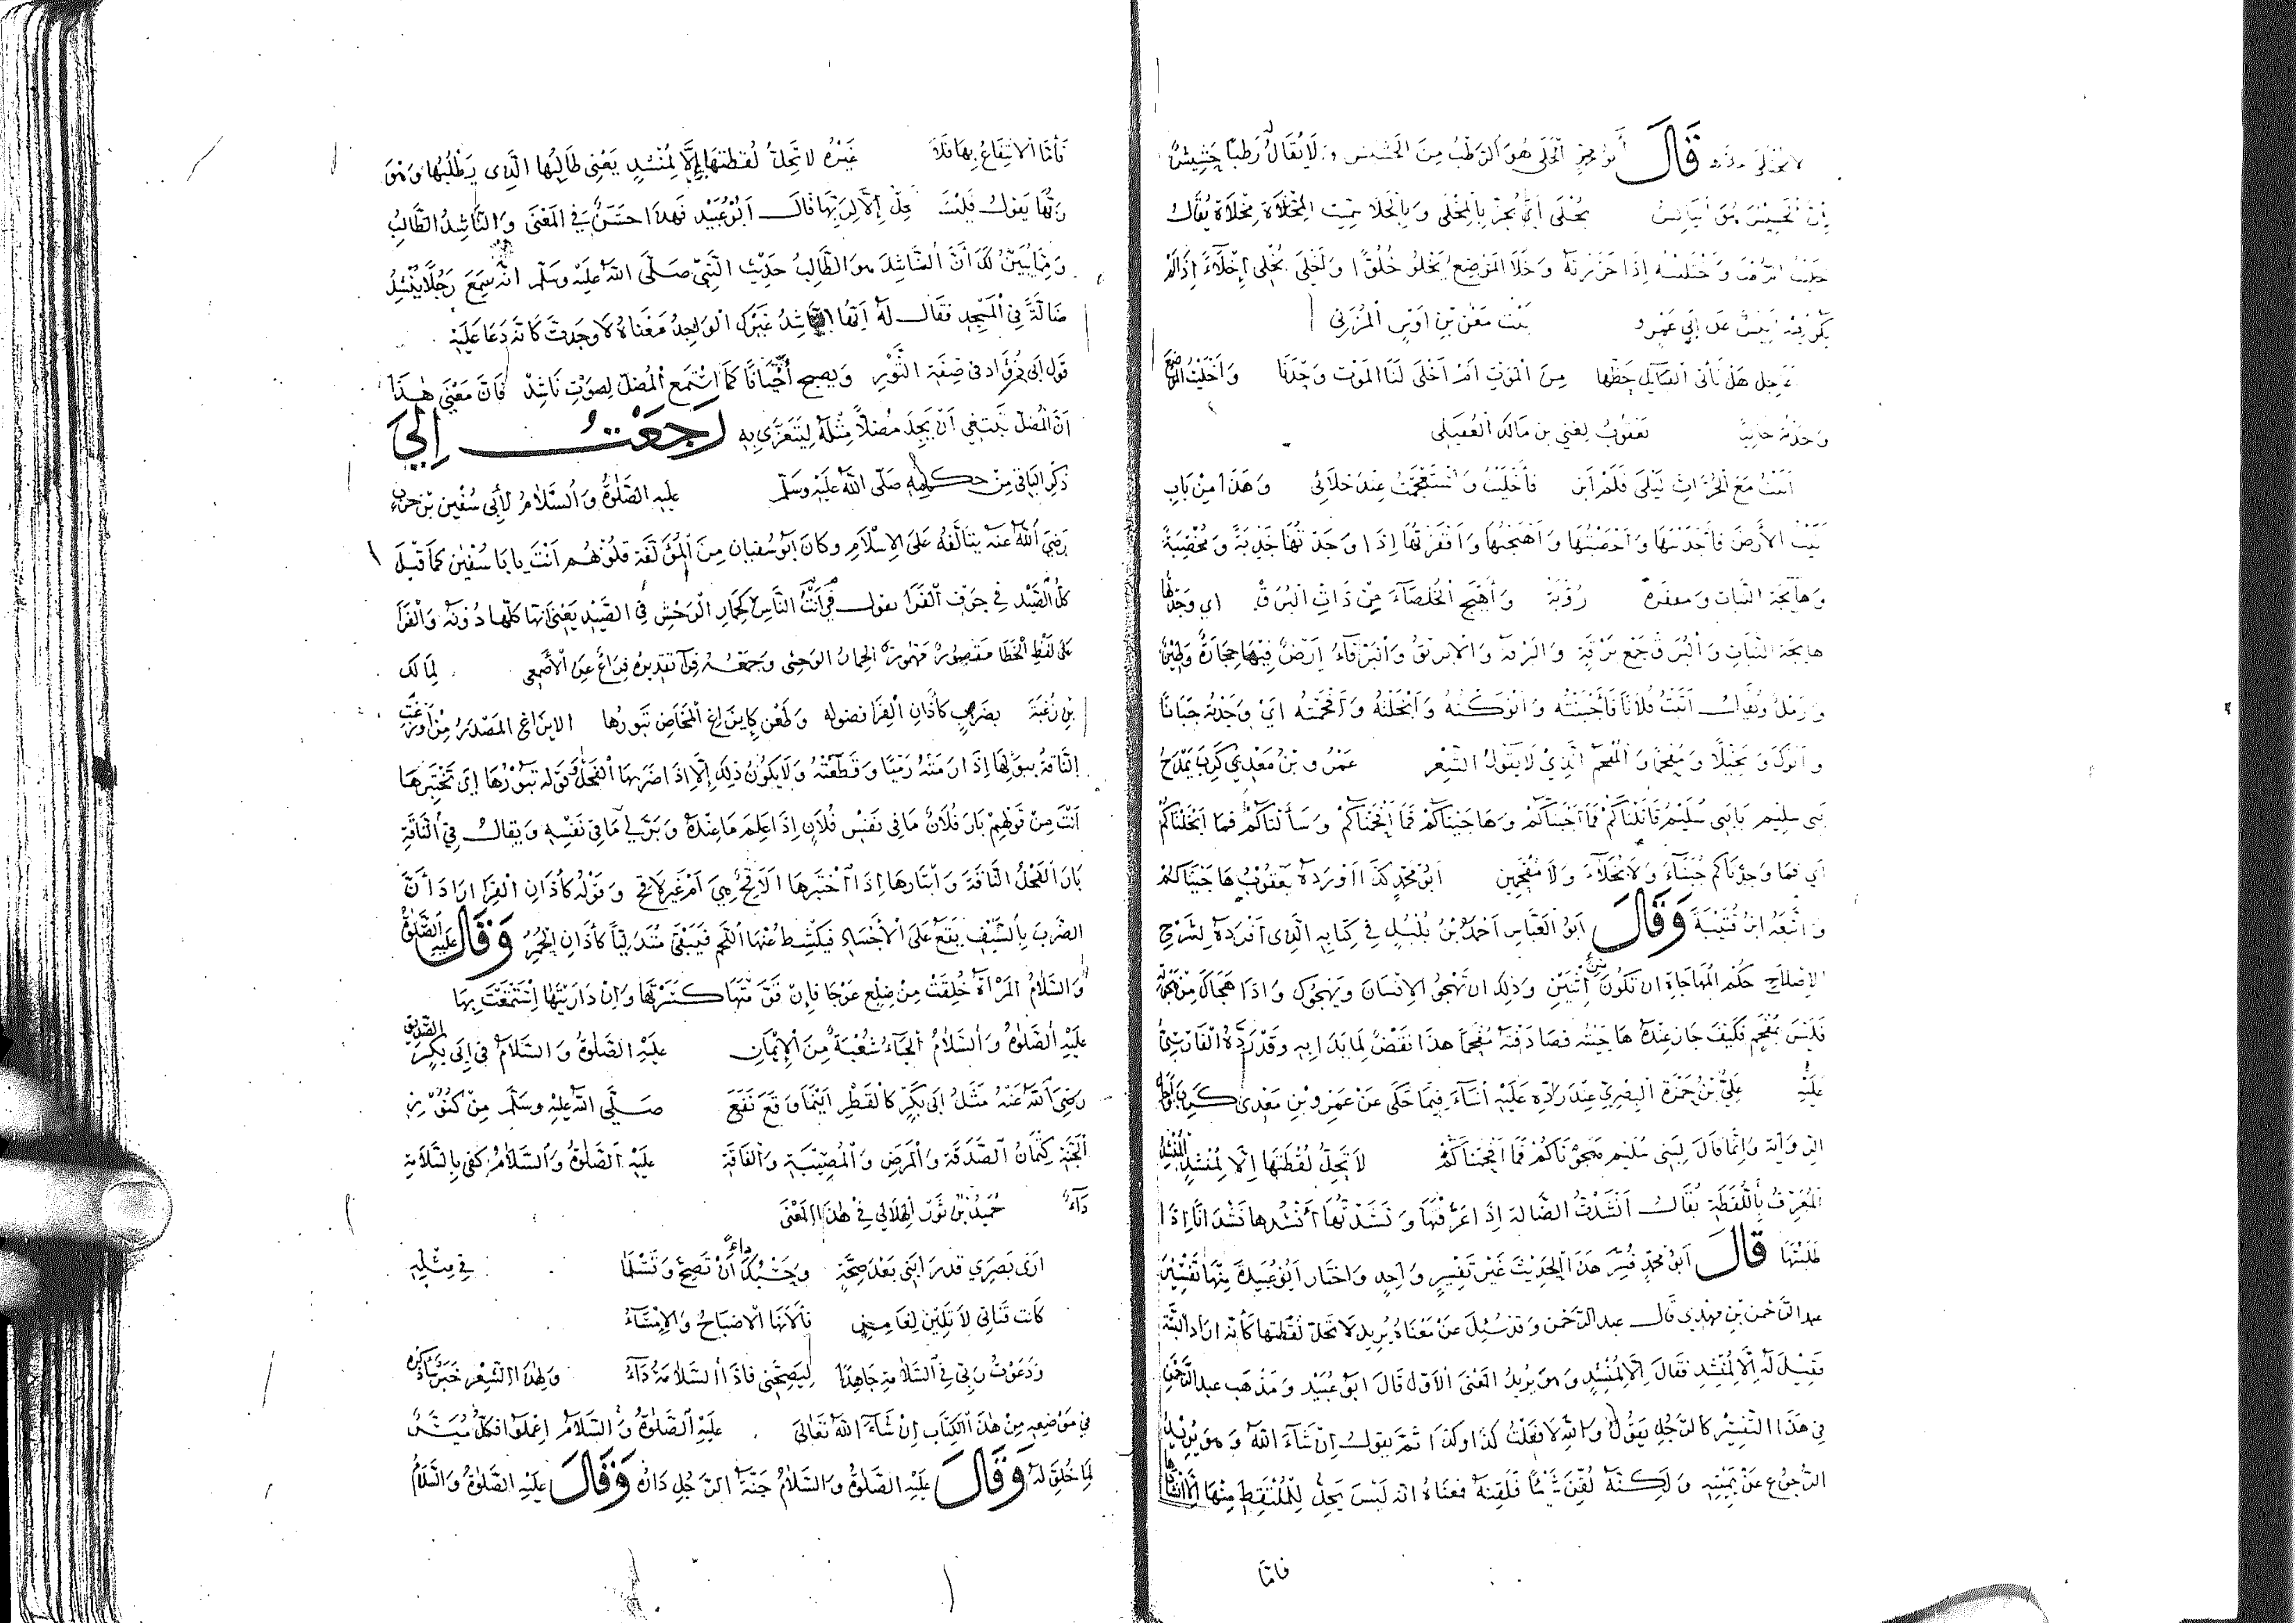 قَالَ أبو محمد الخَلَى هُوَ الرَّطْبُ مِنَ الحَشيش وَلَا يُقَالُ رَطْبًا حَشِيشٌ
يُخْلَى أي يُجَزُّ بِالمِخْلَى وَبِالخَلَا سُمِّيَت المِخْلَاة مِخْلَاةً يُقَالُ
إِذَا جَزَزْتَهُ وَخَلَا المَوْضِعُ يَخْلُو خُلُوًّا وَأَخْلَى يُخْلِي إِخْلَاءً إِذَا لَمْ
يَكُنْ فِيهِ عَن أَبي عَمْرو بَيْتُ مَعْنِ بْنِ أَوْسٍ المُزَنِي
هَلْ تأتي القبائل حظَّها مِنَ المَوْتِ أَمْ أَخْلَى لَنَا المَوْتُ وَحْدَنَا وَأَخْلَيْتُ المَوْضِعَ
وَجَدْتُهُ خَالِيًا يَعْقُوبُ لِعُتَيّ بن مَالك العُقَيلي
أَتَيْتُ مَعَ الحُدَّاثِ لَيْلَى فَلَمْ أُبِنْ فَأَخْلَيْتُ وَاسْتَعْجَمْتُ عِنْدَ خَلَائِي وَهَذَا مِنْ بَابِ
أَتَيْتُ الأَرْضَ فَأَجْدَبْتُهَا وَأَخْصَبْتُهَا وَأَهْيَجْتُهَا وَأَقْفَرْتُهَا إِذَا وَجَدْتُهَا جَدْبَةً وَمُخْصِبَةً
وَهَائِجَةَ النَّبَاتِ وَمُقْفِرَةً رُؤْبَة وَأَهْيَجَ الخَلْصَاءَ مِنْ ذَاتِ البُرَقْ أي وَجَدَهَا
هَائِجَةَ النَّبَاتِ وَالبُرَقُ جَمْعُ بُرْقَةٍ وَالبُرْقَةُ وَالأَبْرَقُ وَالبَرْقَاءُ أَرْضٌ فِيهَا حِجَارَةٌ وَطِينٌ
وَرَمْلٌ وَيُقَالُ أَتَيْتُ فُلَانًا فَأَجْبَنْتُهُ وَأَنْوَكْتُهُ وَأَبْخَلْتُهُ وَأَفْحَمْتُهُ أَيْ وَجَدْتُهُ جَبَانًا
وَأَنْوَكَ وَبَخِيلًا وَمُفْحَمًا وَالمُفْحَمُ الَّذِي لَا يَقُولُ الشِّعْرَ عَمْرُو بْنُ مَعْدِي كَرِبَ يَمْدَحُ
بَنِي سُلَيْمٍ يَا بَنِي سُلَيْمٍ قَاتَلْنَاكُمْ فَمَا أَجْبَنَّاكُمْ وَهَاجَيْنَاكُمْ فَمَا أَفْحَمْنَاكُمْ وَسَأَلْنَاكُمْ فَمَا أَبْخَلْنَاكُمْ
أي فَمَا وَجَدْنَاكُمْ جُبَنَاءَ وَلَا بُخَلَاءَ وَلَا مُفْحَمِينَ أَبُو مُحَمَّد كَذَا أَوْرَدَهُ يَعْقُوبُ هَاجَيْنَاكُمْ
وَاتَّبَعَهُ ابْنُ قُتَيْبَةَ وَقَالَ أَبُو العَبَّاسِ أَحْمَدُ بْنُ بُلْبُلٍ فِي كِتَابِهِ الَّذِي أَفْرَدَهُ لِشَرْحِ
الإِصْلَاحِ حُكْمُ المُهَاجَاةِ أن تَكُونَ مِنْ اثْنَيْنِ وَذَلِكَ أن تَهْجُوَ الإِنْسَانَ وَيَهْجُوكَ وَإِذَا هَجَاكَ مَنْ تَهْجُوهُ
فَلَيْسَ بِمُفْحَمٍ فَكَيْفَ جَازَ عِنْدَهُ هَاجَيْتُهُ فَصَادَفْتُهُ مُفْحَمًا هَذَا نَقْضٌ لِمَا بَدَأَ بِهِ وَقَدْ رَدَّهُ
عَلَيْهِ عَلِيُّ بْنُ حَمْزَةَ البَصْرِيُّ عِنْدَ رَدِّهِ عَلَيْهِ أَشْيَاءَ فِيمَا حَكَى عَنْ عَمْرِو بْنِ مَعْدِي كَرِبَ
الرِّوَايَةَ وَإِنَّمَا قَالَ لِبَنِي سُلَيْمٍ هَجَوْنَاكُمْ فَمَا أَفْحَمْنَاكُمْ لَا تَحِلُّ لُقَطَتُهَا إِلَّا لِمُنْشِدٍ المُنْشِدُ
المُعَرِّفُ بِاللُّقَطَةِ يُقَالُ أَنْشَدْتُ الضَّالَّةَ إِذَا عَرَّفْتَهَا وَنَشَدْتُهَا أَنْشُدُهَا نَشْدَانًا إِذَا
طَلَبْتَهَا قَالَ أَبُو مُحَمَّدٍ فُسِّرَ هَذَا الحَدِيثُ غَيْرَ تَفْسِيرٍ وَاحِدٍ وَاخْتَارَ أَبُو عُبَيْدَةَ مِنْهَا تَفْسِيرَ
عبد الرَّحْمنِ بْنِ مَهْدِي قَالَ عبد الرَّحْمن وَقَدْ سُئِلَ عَنْ مَعْنَاهُ يُرِيدُ لَا تَحِلُّ لُقَطَتُهَا كَأَنَّهُ أَرَادَ البَتَّةَ
فَقِيلَ لَهُ إِلَّا لِمُنْشِدٍ فَقَالَ إِلَّا لِمُنْشِدٍ وَهوَ يُرِيدُ المَعْنَى الأَوَّلَ قَالَ أَبُو عُبَيْد وَمَذْهَب عبد الرَّحْمنِ
فِي هَذَا التَّفْسِيرِ كَالرَّجُلِ يَقُولُ وَاللهِ لَا فَعَلْتُ كَذَا وَكَذَا ثُمَّ يَقُولُ إِنْ شَاءَ اللهُ وَهوَ يُرِيدُ
الرُّجُوعَ عَنْ يَمِينِهِ وَلَكِنَّهُ لُقِّنَ شَيْئًا فَلُقِّنَهُ فَمَعْنَاهُ انه لَيْسَ يَحِلُّ لِلْمُلْتَقِطِ مِنْهَا إِلَّا إِنْشَادُهَا
فامّا
فَأَمَّا الانْتِفَاعُ بِهَا فَلَا غَيْرُهُ لا تَحِلُّ لُقَطَتُهَا إِلَّا لِمُنْشِدٍ يَعْنِي طَالِبَهَا الَّذِي يَطْلُبُهَا وَهوَ
رَبُّهَا يَقُولُ فَلَيْسَتْ تحِلُّ إِلَّا لِرَبِّهَا قَالَ أَبُو عُبَيْد فَهَذَا حَسَنٌ فِي المَعْنَى وَالنَّاشِدُ الطَّالِبُ
وَمِمَّا يُبَيِّنُ لَكَ أَنَّ النَّاشِدَ هوَ الطَّالِبُ حَدِيثُ النَّبِيِّ صَلَّى اللهُ عَلَيْهِ وَسَلَّمَ أنَّهُ سَمِعَ رَجُلًا يَنْشُدُ
ضَالَّةً فِي المَسْجِدِ فَقَالَ لَهُ أَيُّهَا النَّاشِدُ غَيْرُكَ الوَاجِدُ مَعْنَاهُ لَا وَجَدْتَ كَأَنَّهُ دَعَا عَلَيْهِ
قَوْل أَبي دُؤَاد فِي صِفَةِ الثَّوْرِ وَيُصِيخُ أَحْيَانًا كَمَا اسْتَمَعَ المُضِلُّ لِصَوْتِ نَاشِدْ فَإِنَّ مَعْنَى هَذَا
أَنَّ المُضِلَّ يَبْتَغِي أَنْ يَجِدَ مُضِلًّا مِثْلَهُ لِيَتَعَزَّى بِهِ رَجَعْتُ إِلَى
ذِكْرِ البَاقِي مِنْ حِكَمِهِ صَلَّى اللهُ عَلَيْهِ وَسَلَّمَ عَلَيْهِ الصَّلَوةُ وَالسَّلَامُ لِأَبِي سُفْينَ بْنِ حَرْبٍ
رَضِيَ اللهُ عَنْهُ يَتَأَلَّفُهُ عَلَى الإِسْلَامِ وَكَانَ أَبُو سُفْيَانَ مِنَ المُؤَلَّفَةِ قُلُوبُهُم أَنْتَ يا بَا سُفْينَ كَمَا قِيلَ
كُلُّ الصَّيْدِ فِي جَوْفِ الفَرَا يَقول أَنْتَ فِي النَّاسِ كَحِمَارِ الوَحْشِ فِي الصَّيْدِ يَعْنِي أَنَّهَا كُلَّهَا دُونَهُ وَالفَرَأُ
عَلَى لَفْظِ الخَطَأ مَقْصُورٌ مَهْمُوزٌ الحِمَارُ الوَحْشِيُّ وَجَمْعُهُ فِرَاءٌ تقديره فِرَاعٌ عَنِ الأَصْمَعِي لِمَالك
بْنِ زُغْبَةَ بِضَرْبٍ كَآذَانِ الفِرَا فضوله وَطَعْنٍ كَإِيزَاغِ المَخَاضِ تَبُورُهَا الايزاغ المَصْدَرُ مِنْ أَوْزَغَتِ
النَّاقَةُ بِبَوْلِهَا إِذَا رَمَتْهُ رَمْيًا وَقَطَّعَتْهُ وَلَا يَكُونُ ذَلِكَ إِلَّا إِذَا ضَرَبَهَا الفَحْلُ وَقوله تَبُورُهَا أَيْ تَخْتَبِرُهَا
أَنْتَ مِنْ قَوْلِهِمْ بَارَ فُلَانٌ مَا فِي نَفْسِ فُلَانٍ إِذَا عَلِمَ مَا عِنْدَهُ وَبُرْ لِي مَا فِي نَفْسِهِ وَيقالُ فِي النَّاقَةِ
بَارَ الفَحْلُ النَّاقَةَ وَابْتَارَهَا إِذَا اخْتَبَرَهَا أَلَاقِحٌ هِيَ أَمْ غَيْرُ لَاقِحٍ وَقَوْلُهُ كَآذَانِ الفِرَا أَرَادَ أَنَّ
الضَّرْبَ بِالسَّيْفِ يَقَعُ عَلَى الأَجْسَادِ فَيَكْشِطُ عَنْهَا اللَّحْمَ فَيَبْقَى مُتَدَلِّيًا كَآذَانِ الحُمُرِ وَقَالَ عَلَيْهِ الصَّلَوةُ
وَالسَّلَامُ المَرْأَةُ خُلِقَتْ مِنْ ضِلَعٍ عَوْجَا فَإِنْ قَوَّمْتَهَا كَسَرْتَهَا وَإِنْ دَارَيْتَهَا اسْتَمْتَعْتَ بِهَا
عَلَيْهِ الصَّلَوةُ وَالسَّلَامُ الحَيَاءُ شُعْبَةٌ مِنَ الإِيْمَانِ عليه الصَّلَوةُ وَالسَّلَامُ فِي أَبِي بَكْرٍ الصِّدِّيقِ
رَضِيَ اللهُ عَنْهُ مَثَلُ أَبِي بَكْرٍ كَالقَطْرِ أَيْنَمَا وَقَعَ نَفَعَ صَلَّى اللهُ عَلَيْهِ وَسَلَّمَ مِنْ كُنُوزِ
الجَنَّةِ كِتْمَانُ الصَّدَقَةِ وَالمَرَضِ وَالمُصِيبَةِ وَالفَاقَةِ عَلَيْهِ الصَّلَوةُ وَالسَّلَامُ كَفَى بِالسَّلَامَةِ
دَاءً حُمَيْدُ بْنُ ثَوْرٍ الهِلَالِي فِي هَذَا المَعْنَى
أَرَى بَصَرِي قَدْ رَابَنِي بَعْدَ صِحَّةٍ وَحَسْبُكَ دَاءً أَنْ تَصِحَّ وَتَسْلَمَا فِي مِثْلِهِ
كَانَت قَنَاتِي لَا تَلِينُ لِغَامِزٍ فَأَلَانَهَا الإِصْبَاحُ وَالإِمْسَاءُ
وَدَعَوْتُ رَبِّي فِي السَّلَامَةِ جَاهِدًا لِيُصِحَّنِي فَإِذَا السَّلَامَةُ دَاءُ وَلِهَذَا الشِّعْرِ خَبَرٌ سَأَذْكُرُهُ
فِي مَوْضِعِهِ مِنْ هَذَا الكِتَابِ إِنْ شَاءَ اللهُ تَعَالَى عَلَيْهِ الصَّلَوةُ وَالسَّلَامُ اعْمَلُوا فَكُلٌّ مُيَسَّرٌ
لِمَا خُلِقَ لَهُ وَقَالَ عَلَيْهِ الصَّلَوةُ وَالسَّلَامُ جَنَّةُ الرَّجُلِ دَارُهُ وَقَالَ عَلَيْهِ الصَّلَوةُ وَالسَّلَامُ